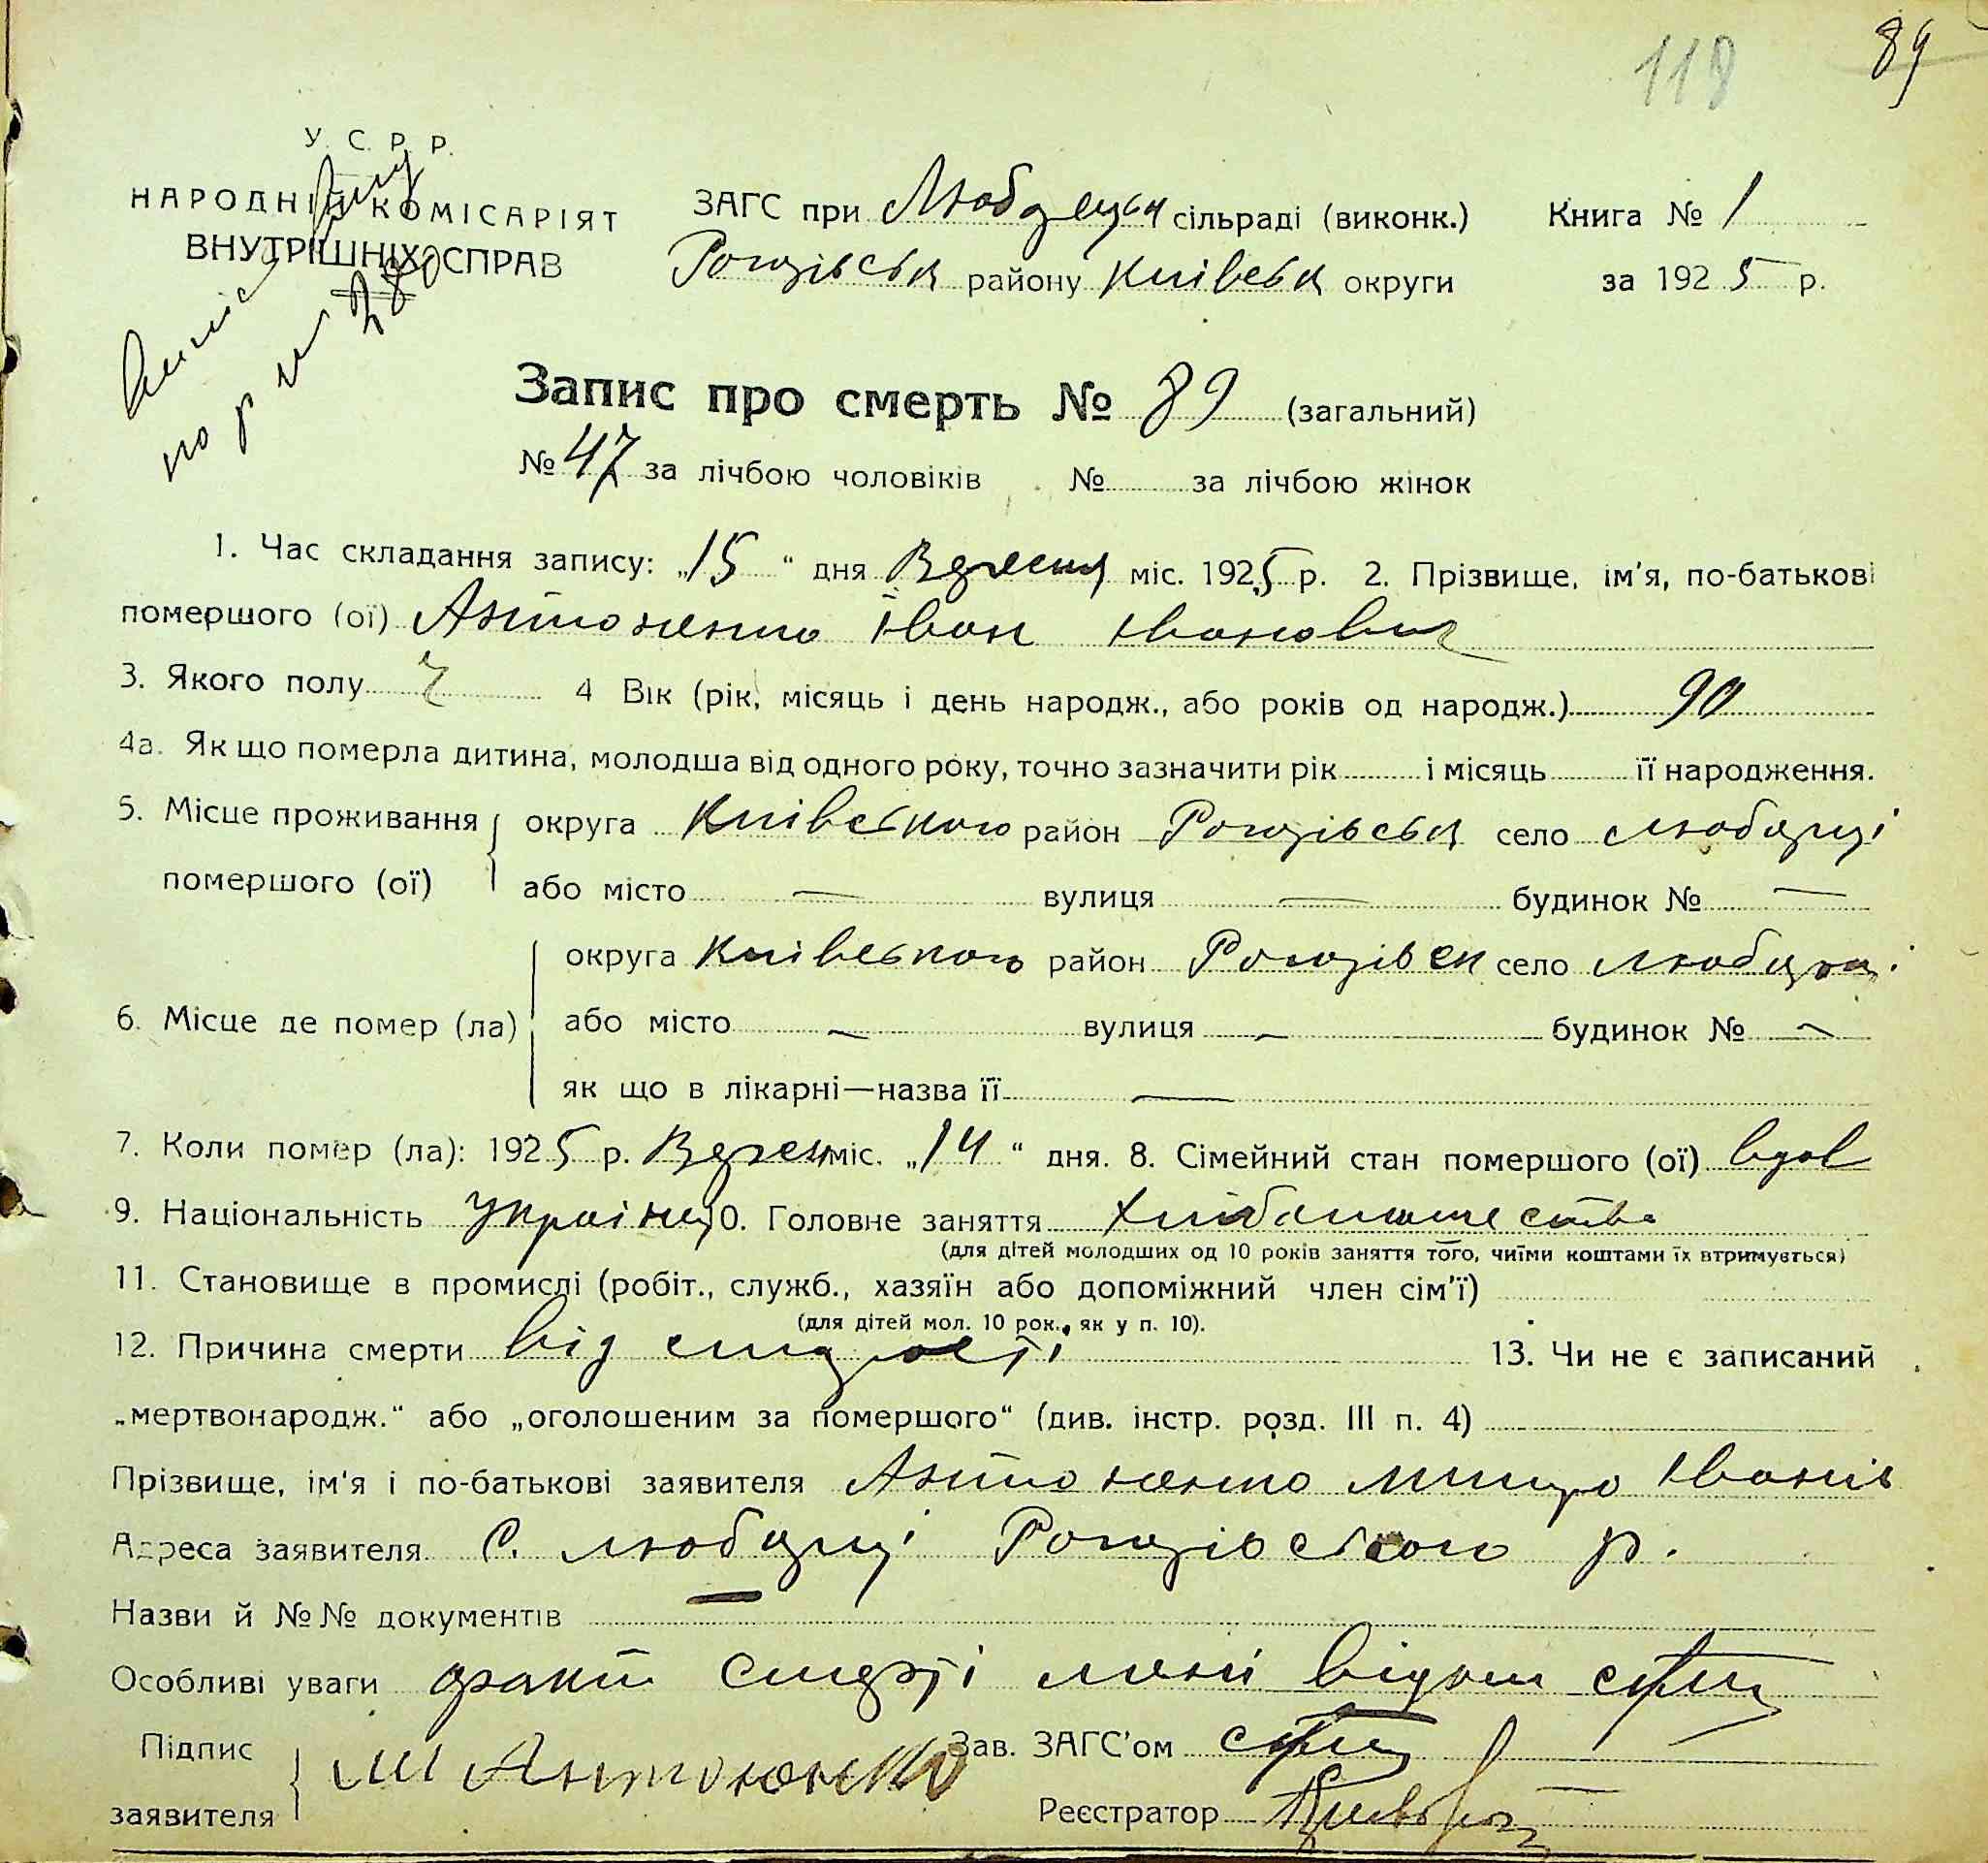 118 89
У. С. Р. Р.
НАРОДНІЙ КОМІСАРІЯТ
ВНУТРІШНІХ СПРАВ
по р № 280
ЗАГС при Любарецьк сільраді (виконк.) Книга № 1
Рогозівськ району Київськ округи за 1925 р.
Запис про смерть № 89 (загальний)
№ 47 за лічбою чоловіків № за лічбою жінок
1. Час складання запису: „15“ дня Вересня міс. 1925 р. 2. Прізвище, ім'я, по-батькові
помершого (ої) Антоненко Іван Іванович
3. Якого полу ч 4 Вік (рік, місяць і день народж., або років од народж.) 90
4а. Як що померла дитина, молодша від одного року, точно зазначити рік і місяць її народження.
5. Місце проживання округа Київського район Рогозівськ село Любарці
помершого (ої) або місто — вулиця — будинок № —
округа Київського район Рогозівськ село Любарці
6. Місце де помер (ла) або місто — вулиця — будинок № —
як що в лікарні—назва її —
7. Коли помер (ла): 1925 р. Вересн міс. „14“ дня. 8. Сімейний стан помершого (ої) вдов
9. Національність Українец 10. Головне заняття Хлібопашество
(для дітей молодших од 10 років заняття того, чиїми коштами їх втримується)
11. Становище в промислі (робіт., служб., хазяїн або допоміжний член сім'ї)
(для дітей мол. 10 рок., як у п. 10).
12. Причина смерти від старості 13. Чи не є записаний
„мертвонародж.“ або „оголошеним за помершого“ (див. інстр. розд. III п. 4)
Прізвище, ім'я і по-батькові заявителя Антоненко Митро Іванів
Адреса заявителя С. Любарці Рогозівського р.
Назви й №№ документів —
Особливі уваги факт смерті мені відом
Підпис заявителя М Антоненко Зав. ЗАГС'ом
Реєстратор